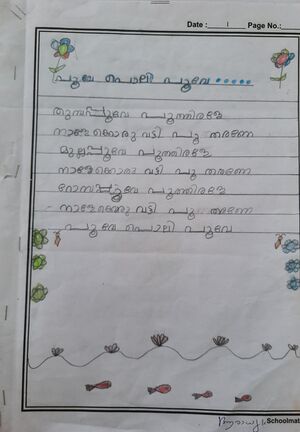 Date : Page No.:
പൂവേ പൊലി പൂവേ.....
തുമ്പപ്പൂവേ പൂത്തിരളേ
നാളേക്കൊരു വട്ടി പൂ തരണേ
മുല്ലപ്പൂവേ പൂത്തിരളേ
നാളേക്കൊരു വട്ടി പൂ തരണേ
പൂത്തിരളേ
നാളേക്കൊരു വട്ടി പൂ തരണേ
പൂവേ പൊലി പൂവേ
Schoolmat